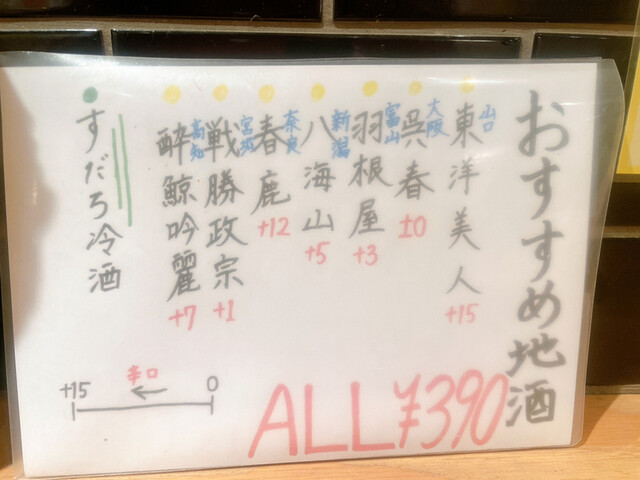 おすすめ地酒
山口
東洋美人
+15
大阪
呉春
±0
富山
羽根屋
+3
新潟
八海山
+5
奈良
春鹿
+12
宮城
戦勝政宗
+1
高知
酔鯨吟麗
+7
すだち冷酒
+15
辛口
0
ALL¥390